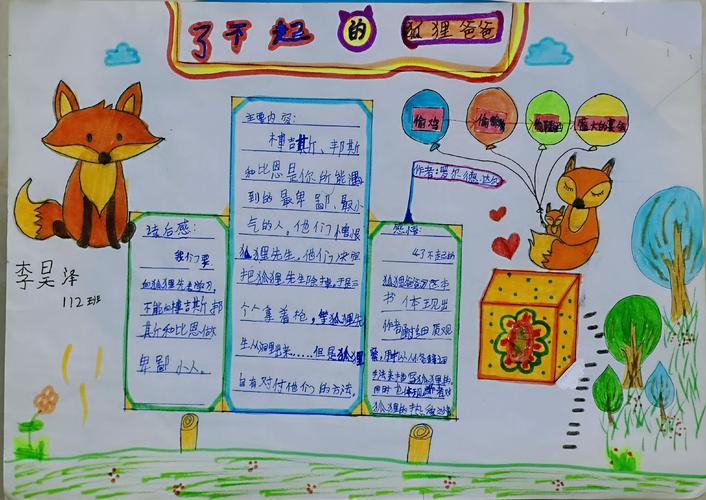 了不起的狐狸爸爸
偷鸡
偷鸭
盛大的宴会
作者:罗尔德·达尔
主要内容:
博吉斯、邦斯
和比恩是你所能遇
到的最卑鄙、最小
气的人,他们憎恨
狐狸先生,他们决定
把狐狸先生除掉,于是三
个个拿着枪,等狐狸先
生从洞里出来……但是狐狸
自有对付他们的方法。
读后感:
我们要
向狐狸先生学习,
不能向博吉斯、邦
其斯和比恩做
卑鄙小人。
感悟:
了不起的
狐狸爸爸
书体现出
作者
狐狸的热
李昊泽
112班